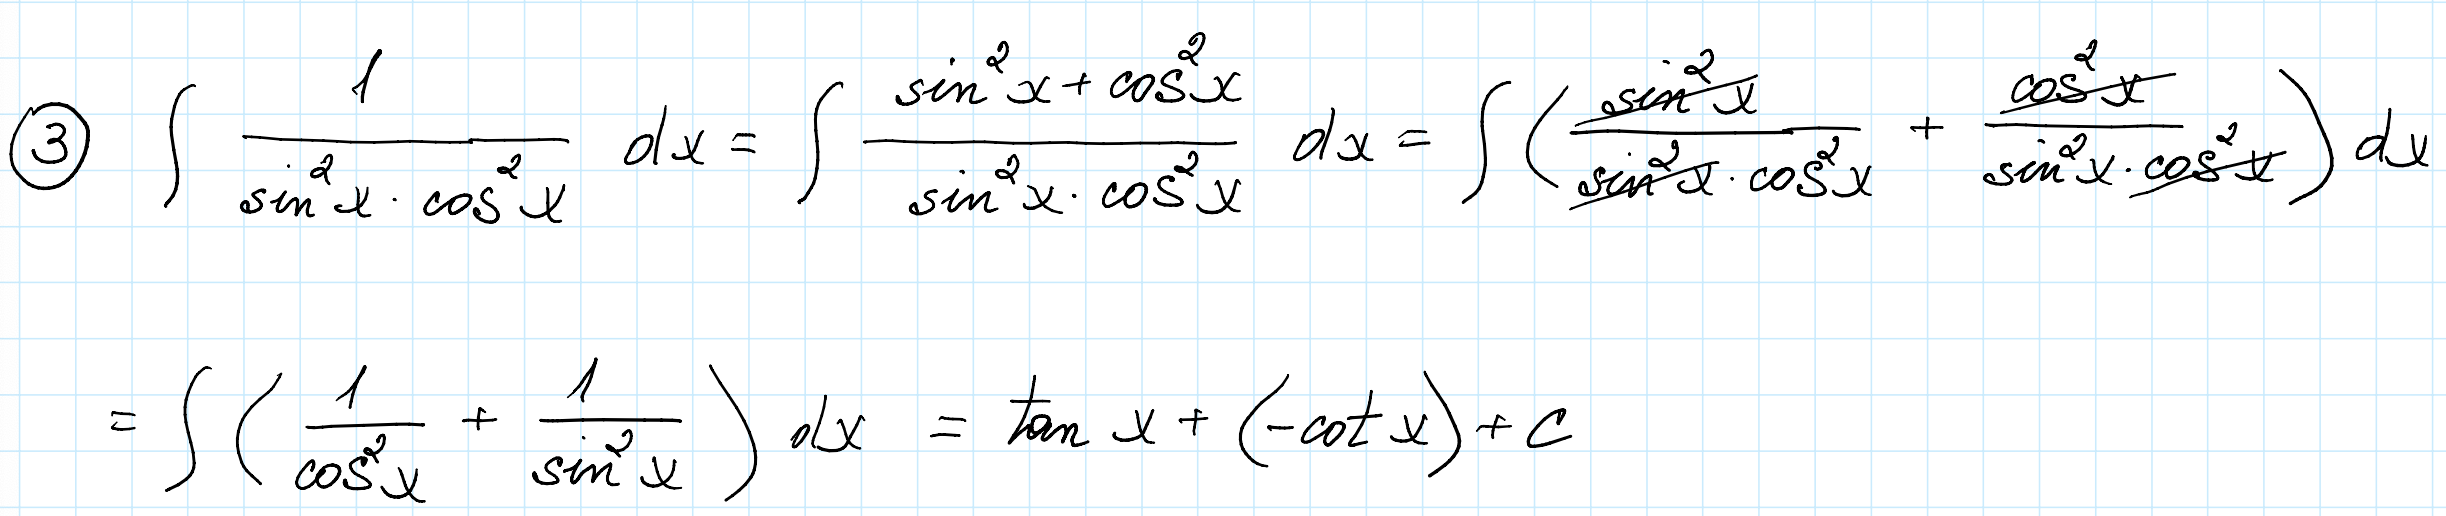 ③ ∫ 1/(sin²x · cos²x) dx = ∫ (sin²x + cos²x)/(sin²x · cos²x) dx = ∫ (sin²x/(sin²x · cos²x) + cos²x/(sin²x · cos²x)) dx
= ∫ (1/cos²x + 1/sin²x) dx = tan x + (-cot x) + C